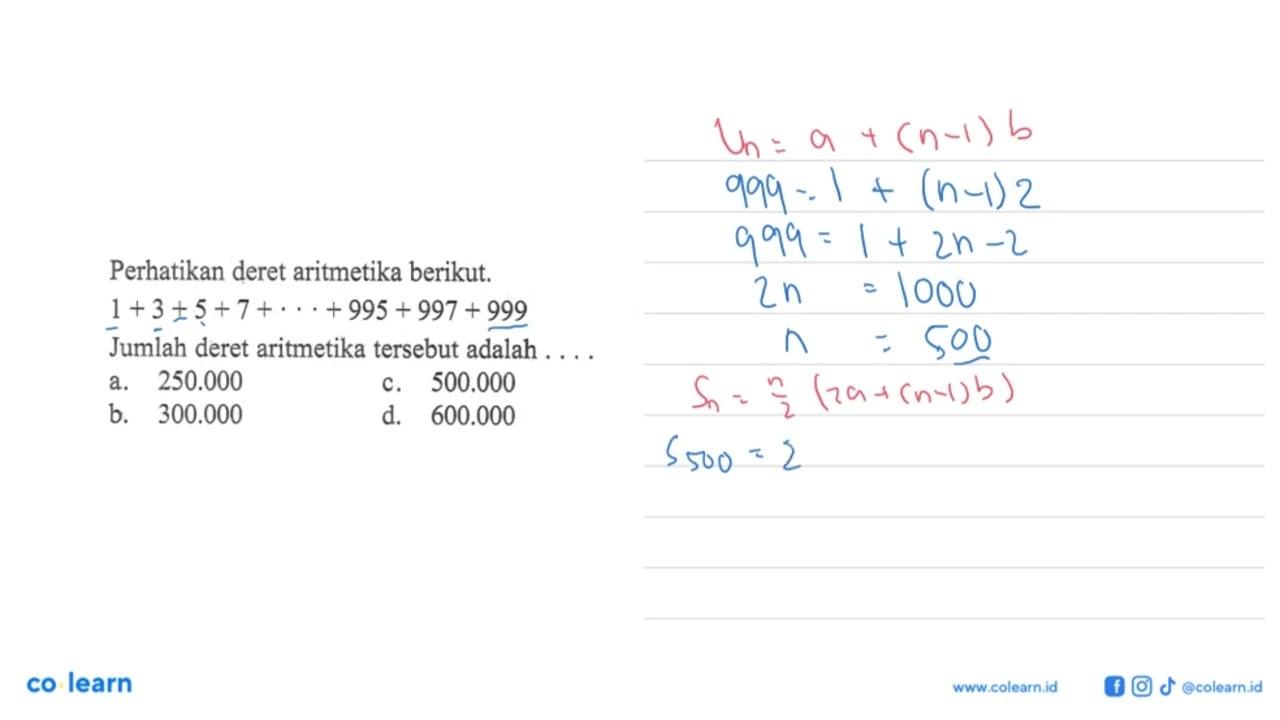 Perhatikan deret aritmetika berikut.
1 + 3 + 5 + 7 + · · · + 995 + 997 + 999
Jumlah deret aritmetika tersebut adalah . . . .
a. 250.000 c. 500.000
b. 300.000 d. 600.000
Un = a + (n-1) b
999 = 1 + (n-1) 2
999 = 1 + 2n - 2
2n = 1000
n = 500
Sn = n/2 (2a + (n-1) b)
S500 = 2
co learn
www.colearn.id @colearn.id